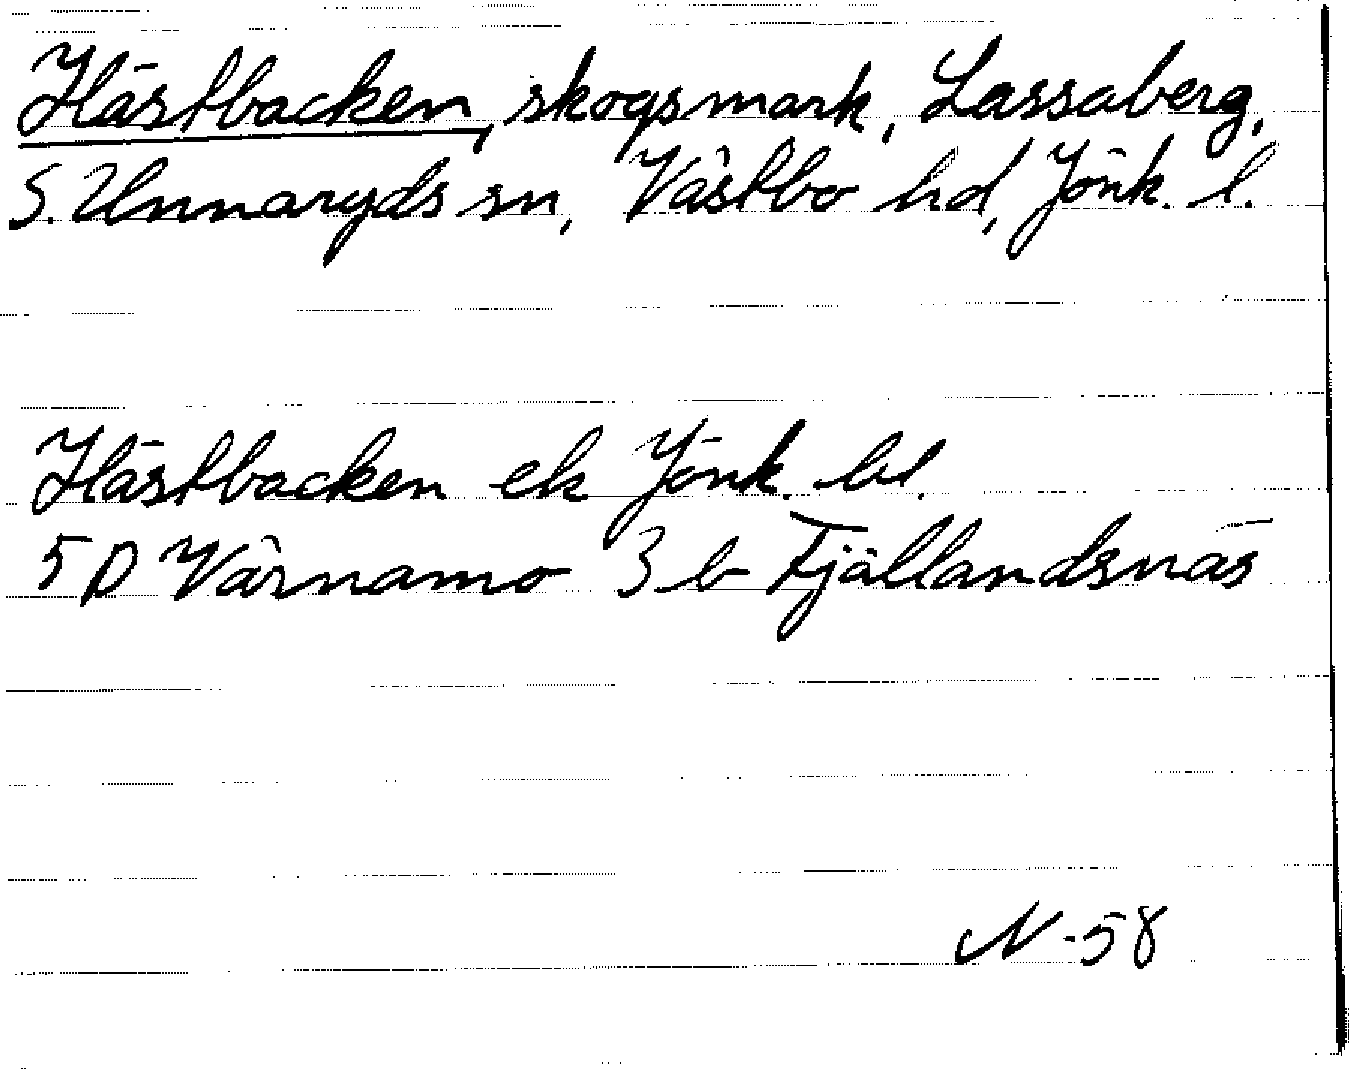 Hästbacken, skogsmark, Lassaberg,
S. Unnaryds sn, Västbo hd, Jönk. l.
Hästbacken ek Jönk. bl.
5 D Värnamo 3 b Fjällandsnäs
N -58